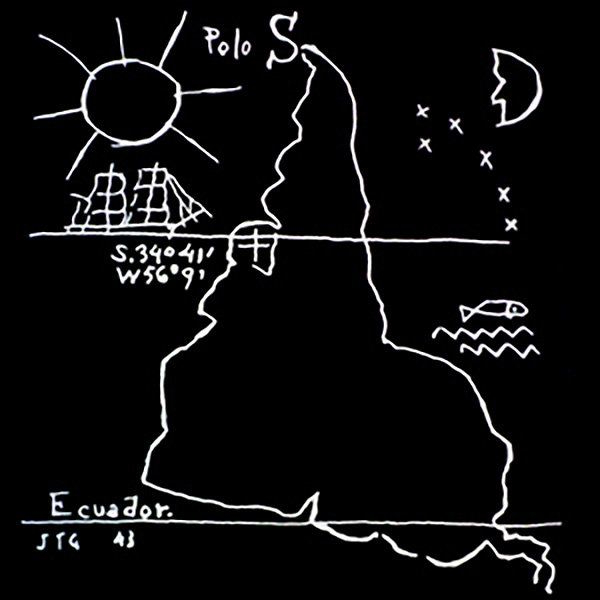 Polo S.
S. 34º 41'
W 56º 9'
Ecuador.
JTG 43